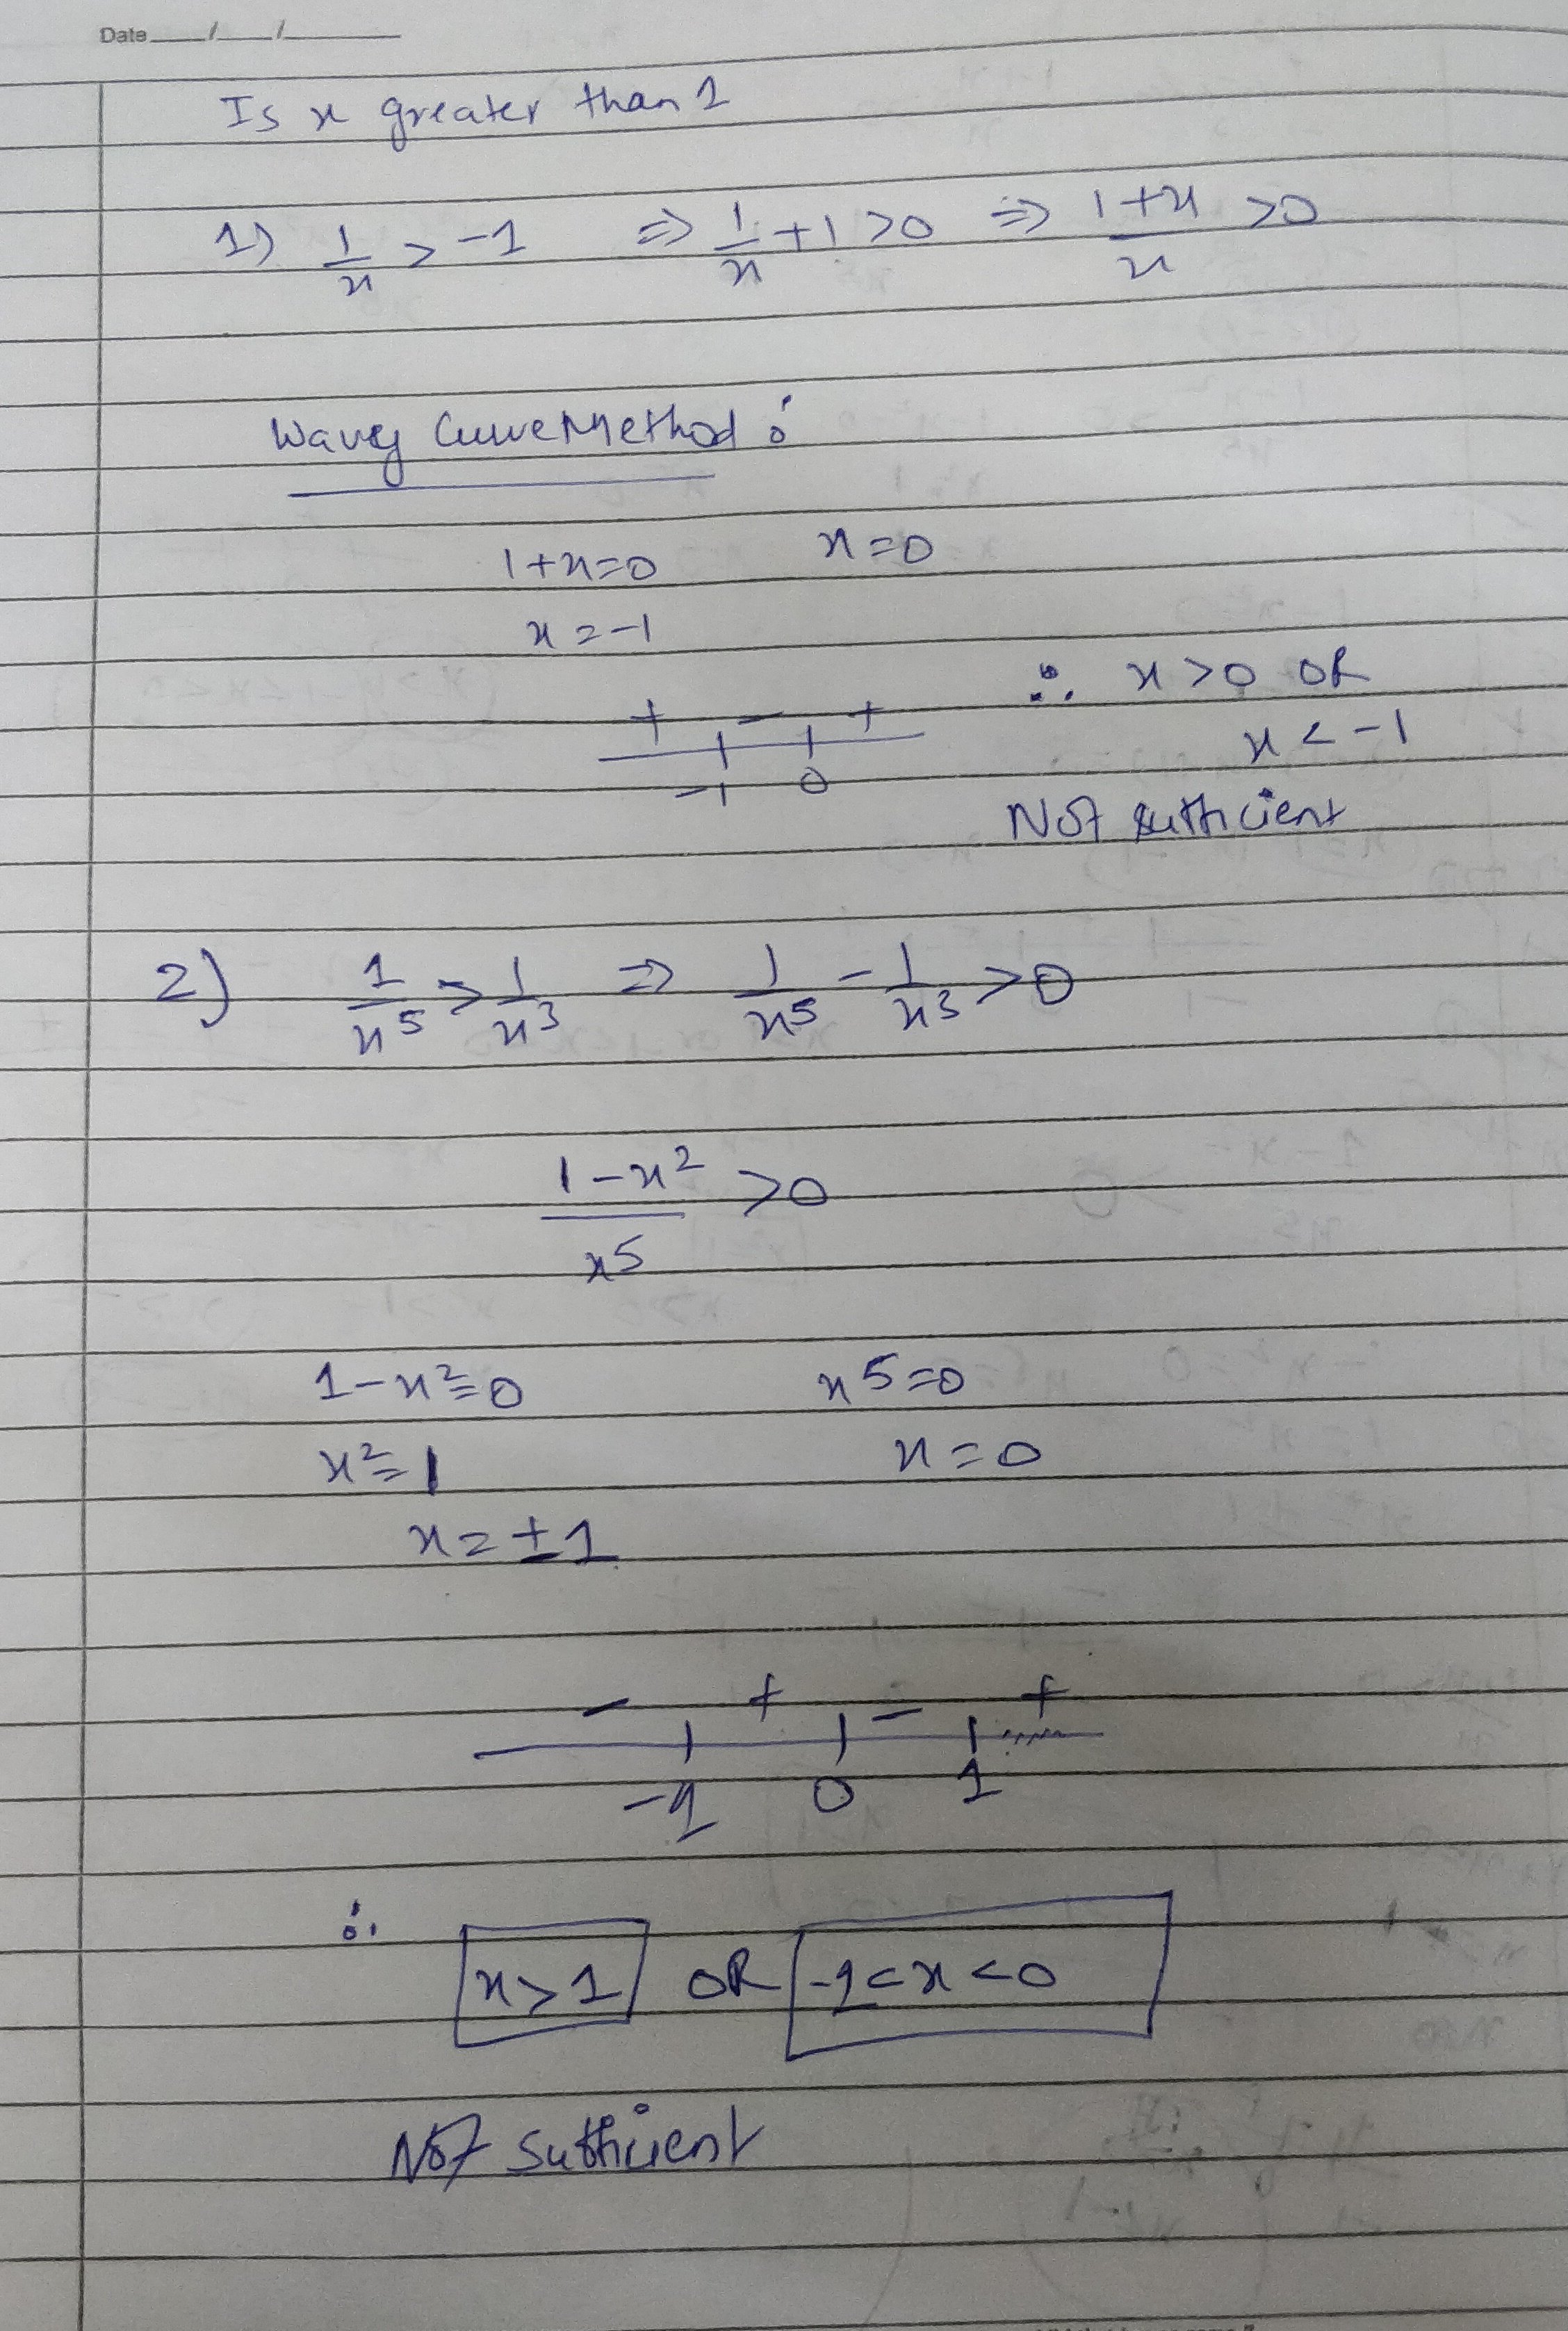 Date __/__/____
Is x greater than 1
1) 1/x > -1 ⇒ 1/x + 1 > 0 ⇒ (1+x)/x > 0
Wavey Curve Method :
1+x=0 x=0
x=-1
∴ x>0 OR
+ - +
x<-1
-1 0
Not sufficient
2) 1/x^5 > 1/x^3 ⇒ 1/x^5 - 1/x^3 > 0
(1-x^2)/x^5 > 0
1-x^2=0 x^5=0
x^2=1 x=0
x=±1
- + - +
-1 0 1
∴ x>1 OR -1<x<0
Not sufficient